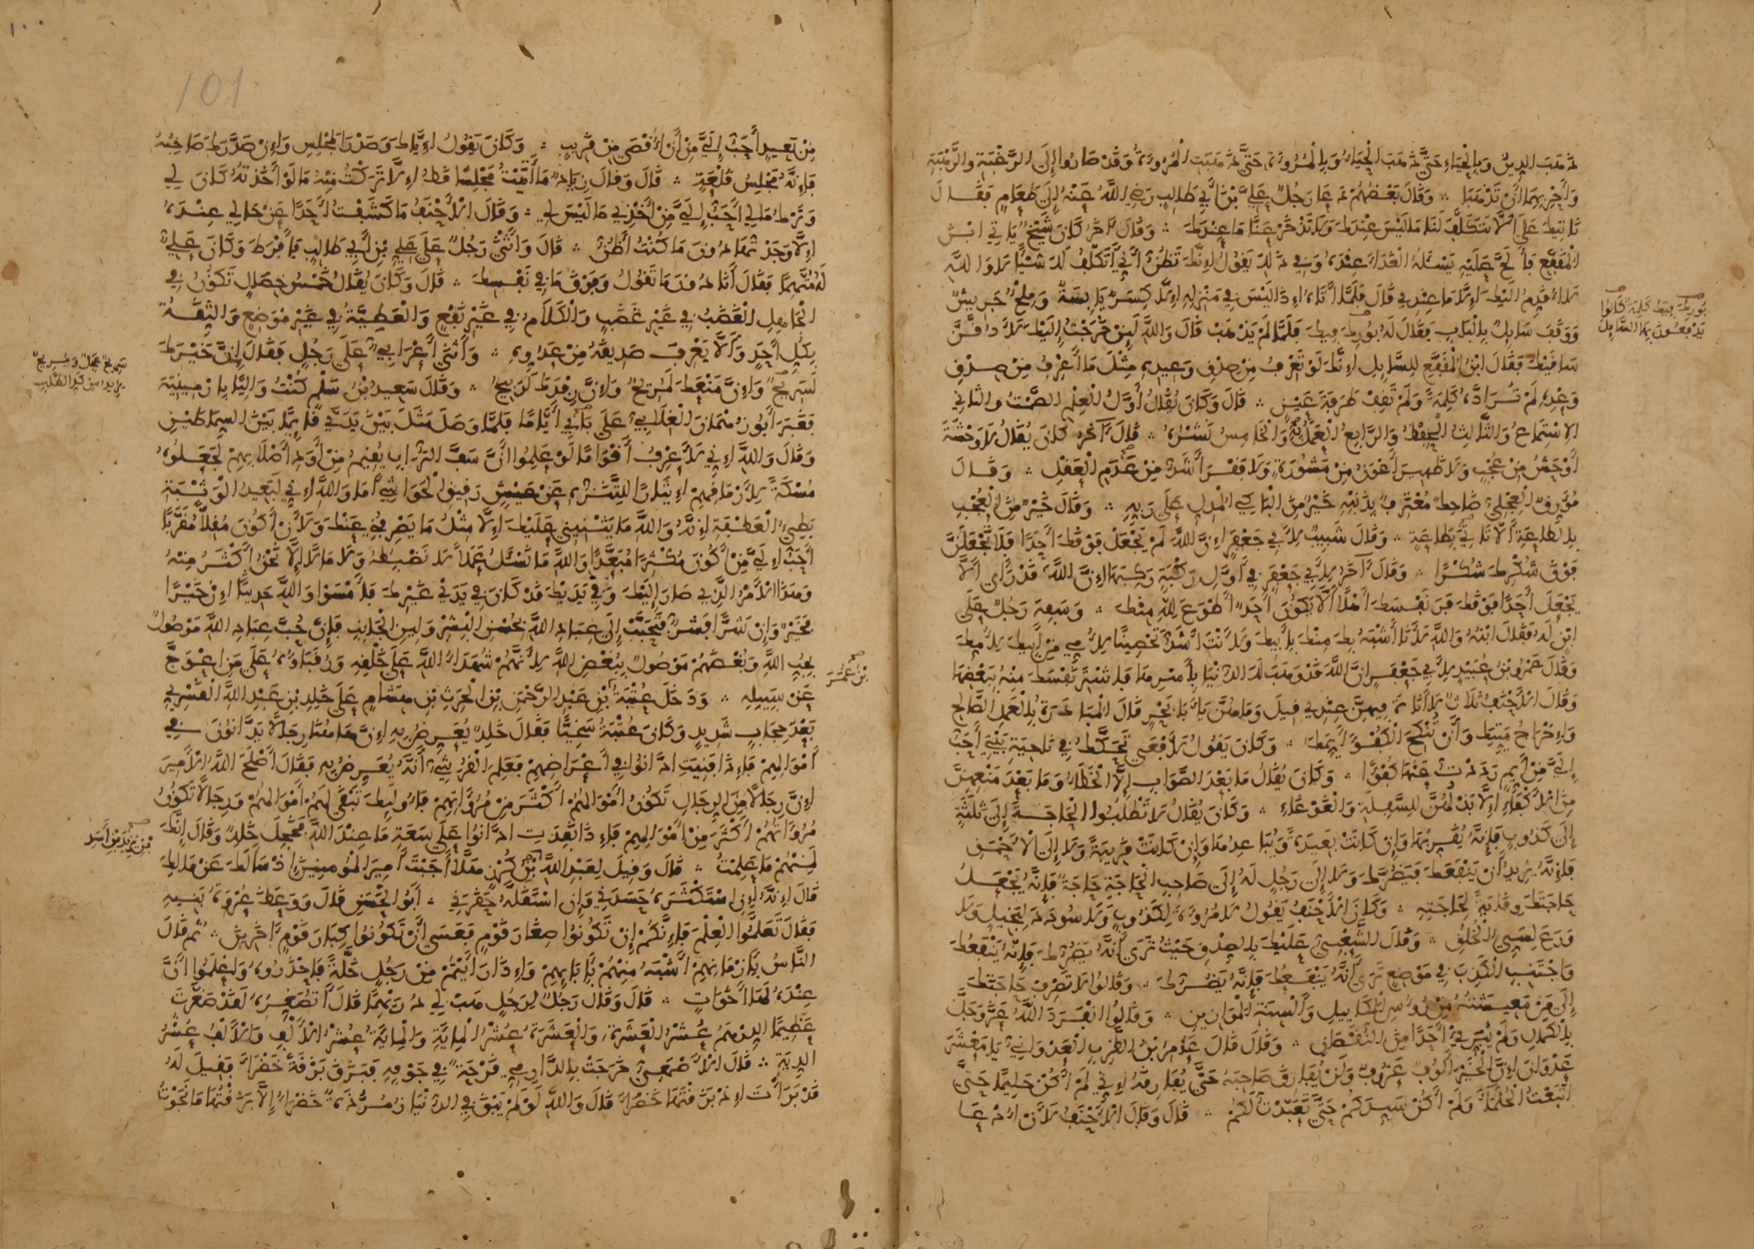 ذهب الدين وبالحياء حتى ذهب الحياء وبالمروءة حتى ذهبت المروءة وقد صاروا إلى الرغبة والرهبة
وأحر بهما أن تذهبا ∴ وقال بعضهم دعا رجل علي بن أبي طالب رضي الله عنه إلى طعام فقال
نأتيك على ألا تتكلف لنا ما ليس عندك ولا تدخر عنا ما عندك ∴ وقال آخر كان شيخ يأتي ابن
المقفع فألح عليه يسئله الغداء عنده وفي ذلك يقول إنك تظن أني أتكلف لك شيئا لا والله
لا أقدم إليك إلا ما عندي قال فلما أتاه إذا ليس في منزله إلا كسر يابسة وملح جريش
ووقف سايل بالباب فقال له بورك فيك فلما لم يذهب قال والله لئن خرجت إليك لأدقن
ساقيك فقال ابن المقفع للسايل إنك لو تعرف من صدق وعيده مثل ما أعرف من صدق
وعده لم تراد كلمة ولم تقف طرفة عين ∴ قال وكان يقال أول العلم الصمت والثاني
الاستماع والثالث الحفظ والرابع العمل به والخامس نشره ∴ قال آخر كان يقال لا وحشة
أوحش من عجب ولا ظهير أعون من مشورة ولا فقر أشد من عدم العقل ∴ وقال
مورق العجلي ضاحك معترف بذنبه خير من الباكي المدل على ربه ∴ وقال خير من العجب
بالطاعة ألا تأتي بطاعة ∴ وقال شبيب لأبي جعفر إن الله لم يجعل فوقك أحدا فلا تجعلن
فوق شكرك شكرا ∴ وقال آخر لأبي جعفر في أول ركبة ركبها إن الله قد رأى ألا
يجعل أحدا فوقك فر نفسك أهلا ألا يكون أحد أطوع لله منك ∴ وسفه رجل على
ابن له فقال ابنه والله لأنا أشبه بك منك بأبيك ولأنت أشد تحصينا لأمي من أبيك لأمك
وقال عمرو بن عبيد لأبي جعفر إن الله قد وهب لك الدنيا بأسرها فاشتر نفسك منه ببعضها
وقال الأحنف ثلاث لا أناة فيهن عندي قيل وما هن يا أبا بحر قال المبادرة بالعمل الصالح
وإخراج ميتك وأن تنكح الكفؤ أيمك ∴ وكان يقول لأفعى تحكك في ناحية بيتي أحب
إلي من أيم رددت عنها كفؤا ∴ وكان يقال ما بعد الصواب إلا الخطاء وما بعد منعهن
من الأكفاء إلا بذلهن للسفلة والغوغاء ∴ وكان يقال لا تطلبوا الحاجة إلى ثلثة
إلى كذوب فإنه يقربها وإن كانت بعيدة ويباعدها وإن كانت قريبة ولا إلى الأحمق
فإنه يريد أن ينفعك فيضرك ولا إلى رجل له إلى صاحب الحاجة حاجة فإنه يجعل
حاجتك وقاية لحاجته ∴ وكان الأحنف يقول لا مروءة لكذوب ولا سودد لبخيل ولا
ورع لسيئ الخلق ∴ وقال الشعبي عليك بالصدق حيث ترى أنه يضرك فإنه ينفعك
واجتنب الكذب في موضع ترى أنه ينفعك فإنه يضرك ∴ وقالوا لا تصرف حاجتك
إلى من معيشته من رؤس المكاييل وألسنة الموازين ∴ وقالوا انفرد الله عز وجل
بالكمال ولم يبرئ أحدا من النقصان ∴ وقال قال عامر بن الظرب العدواني يا معشر
عدوان إن الخير ألوف عزوف ولن يفارق صاحبه حتى يفارقه إني لم أكن حليما حتى
اتبعت الحلماء ولم أكن سيدكم حتى تعبدت لكم ∴ قال وقال الأحنف لأن أدعا
بورك فيك كلمة كانوا
يدفعون بها السايل
101
من بعيد أحب إلي من أن أقصى من قريب ∴ وكان يقول إياك وصدر المجلس وإن صدرك صاحبه
فإنه مجلس قلعة ∴ قال وقال زياد ما أتيت مجلسا قط إلا تركت منه ما لو أخذته كان لي
وترك ما لي أحب إلي من أخذي ما ليس لي ∴ وقال الأحنف ما كشفت أحدا عن حالي عنده
إلا وجدتها دون ما كنت أظن ∴ قال وأثنى رجل على علي بن أبي طالب فأفرط وكان علي
له متهما فقال أنا دون ما تقول وفوق ما في نفسك ∴ قال وكان يقال خمس خصال تكون في
الجاهل الغضب في غير غضب والكلام في غير نفع والعطية في غير موضع والثقة
بكل أحد وألا يعرف صديقه من عدوه ∴ وأثنى أعرابي على رجل فقال إن خيرك
لسريح وإن منعك لمريح وإن رفدك لربيح ∴ وقال سعيد بن سلم كنت واليا بارمينية
فغبر أبو دهمان الغلابي على بابي أياما فلما وصل مثل بين يدي قايما بين السماطين
وقال والله إني لأعرف أقواما لو علموا أن سف التراب يقيم من أود أصلابهم لجعلوه
مسكة لأرماقهم إيثارا للتنزه عن عيش رقيق الحواشي أما والله إني لبعيد الوثبة
بطيء العطفة إنه والله ما يثنيني عليك إلا مثل ما يصرفني عنك ولأن أكون مقلا مقربا
أحب إلي من أكون مكثرا مبعدا والله ما نسئل عملا لا نضبطه ولا مالا إلا نحن أكثر منه
وهذا الأمر الذي صار إليك وفي يديك قد كان في يدي غيرك فأمسوا والله حديثا إن خيرا
فخير وإن شرا فشر فتحبب إلى عباد الله بحسن البشر ولين الجانب فإن حب عباد الله موصول
بحب الله وبغضهم موصول ببغض الله لأنهم شهداء الله على خلقه ورقباؤه على من اعوج
عن سبيله ∴ ودخل عتبة بن عبد الرحمن بن الحرث بن هشام على خلد بن عبد الله القسري
بعد حجاب شديد وكان عتبة سخيا فقال خلد يعرض به إن هاهنا رجالا يدانون في
أموالهم فإذا فنيت ادانوا في أعراضهم فعلم القرشي أنه يعرض به فقال أصلح الله الأمير
إن رجالا من الرجال تكون أموالهم أكثر من مروآتهم فأولئك تبقى لهم أموالهم ورجالا تكون
مروآتهم أكثر من أموالهم فإذا نفدت ادانوا على سعة ما عند الله فخجل خلد وقال إنك
لمنهم ما علمت ∴ قال وقيل لعبد الله بن كرز هلا أجبت أمير المؤمنين إذ سألك عن مالك
قال إنه إن استكثره حسدني وإن استقله حقرني ∴ أبو الحسن قال ووعظ عروة بنيه
فقال تعلموا العلم فإنكم إن تكونوا صغار قوم فعسى أن تكونوا كبار قوم آخرين ∴ ثم قال
الناس بأزمانهم أشبه منهم بآبائهم وإذا رأيتم من رجل خلة فاحذروه واعلموا أن
عنده لها أخوات ∴ قال وقال رجل لرجل هب لي دريهما قال أتصغره لقد صغرت
عظيما الدرهم عشر العشرة والعشرة عشر الماية والماية عشر الألف والألف عشر
الدية ∴ قال الأصمعي خرجت بالدارمي قرحة في جوفه فبزق بزقة خضراء فقيل له
قد برأت إذ بزقتها خضراء قال والله لو لم يبق في الدنيا زمردة خضراء إلا بزقتها ما نجوت
بن عمر
بن يزيد بن أسد
سريح معجل ومريح
يريد من كد الطلب